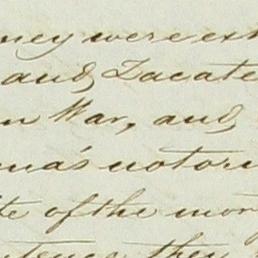 ney were ex
and Zacate
n War, and
na's notori
te of the mor
they